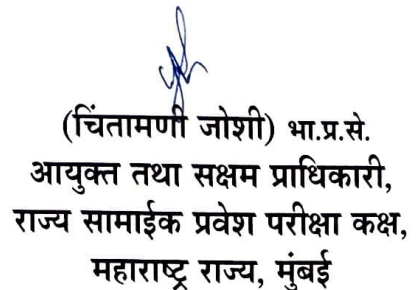 (चिंतामणी जोशी) भा.प्र.से.
आयुक्त तथा सक्षम प्राधिकारी,
राज्य सामाईक प्रवेश परीक्षा कक्ष,
महाराष्ट्र राज्य, मुंबई